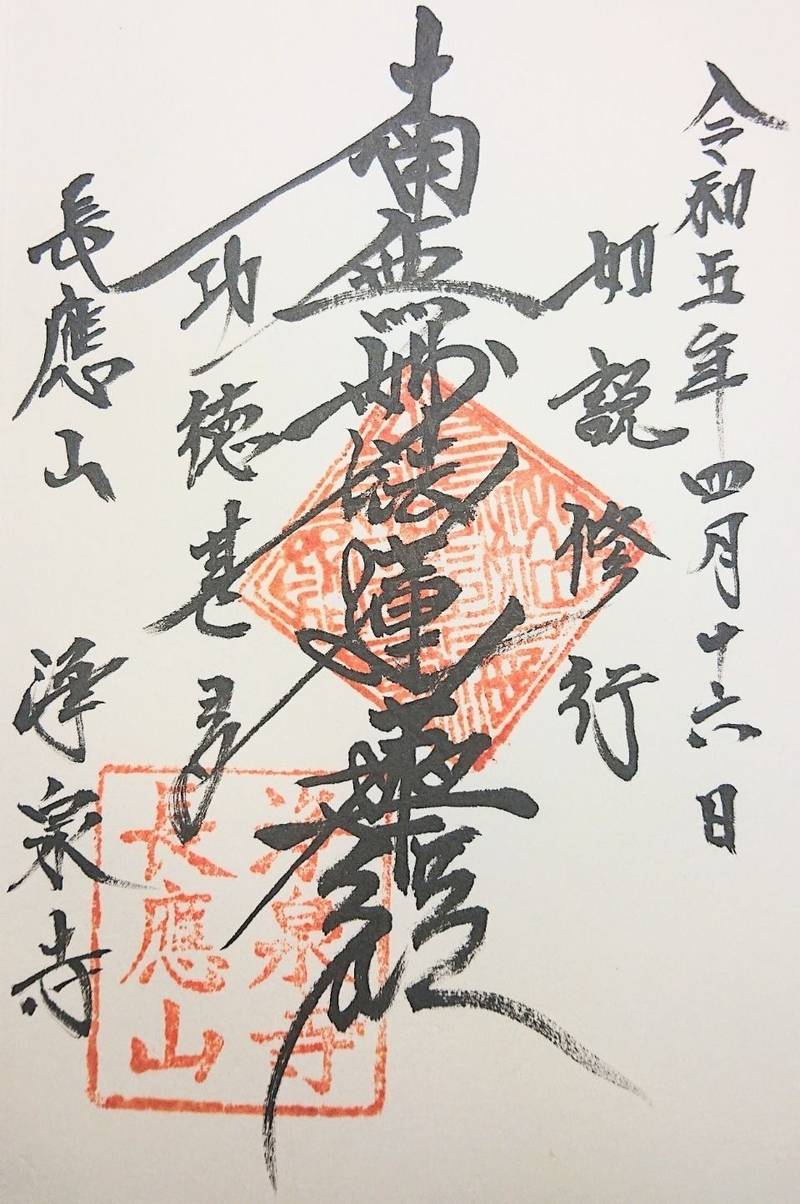 令和五年四月十六日
如説修行
南無妙法蓮華経
功徳甚多
長應山 浄泉寺
浄泉寺
長應山